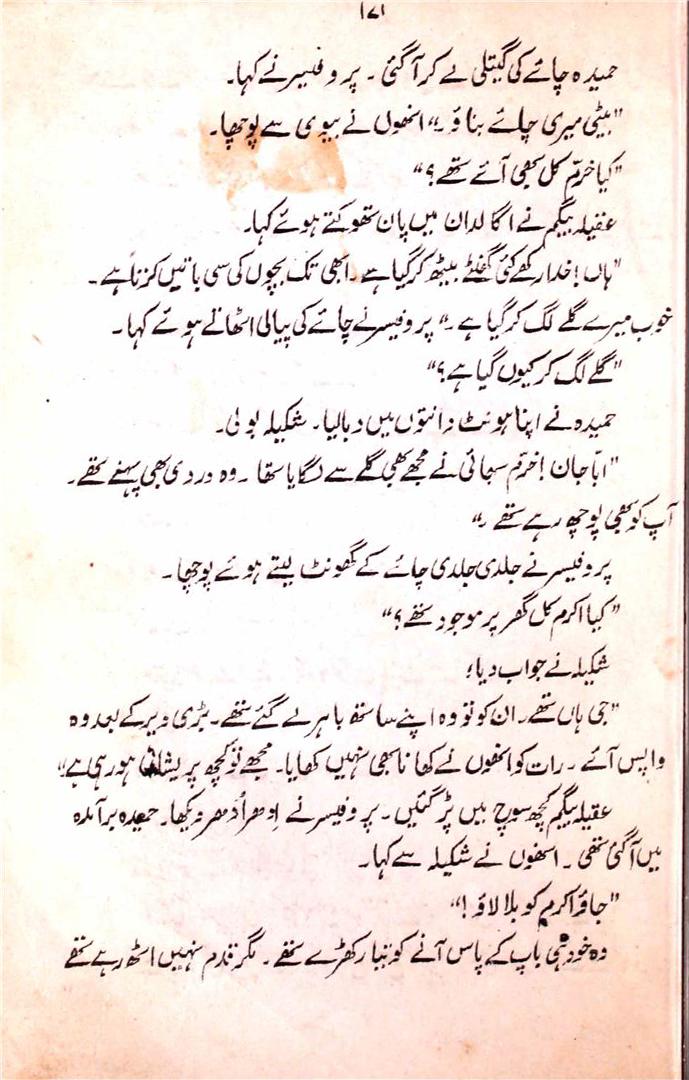 ۱۷۱
حمیدہ چائے کی کیتلی لے کر آ گئی ۔ پروفیسر نے کہا۔
"بیٹی میری چائے بناؤ ۔" انھوں نے بیوی سے پوچھا۔
"کیا خرّم کل بھی آئے تھے ؟"
عقیلہ بیگم نے اگالدان میں پان تھوکتے ہوئے کہا۔
"ہاں ! خدا رکھے کئی گھنٹے بیٹھ کر گیا ہے ۔ ابھی تک بچوں کی سی باتیں کرتا ہے ۔
خوب میرے گلے لگ کر گیا ہے ۔" پروفیسر نے چائے کی پیالی اٹھاتے ہوئے کہا ۔
"گلے لگ کر کیوں گیا ہے ؟"
حمیدہ نے اپنا ہونٹ دانتوں میں دبا لیا۔ شکیلہ بولی۔
"ابّا جان ! خرّم بھائی نے مجھے بھی گلے سے لگایا تھا ۔ وہ وردی بھی پہنے تھے ۔
آپ کو بھی پوچھ رہے تھے ۔"
پروفیسر نے جلدی جلدی چائے کے گھونٹ لیتے ہوئے پوچھا ۔
"کیا اکرم کل گھر پر موجود تھے ؟"
شکیلہ نے جواب دیا ؛
"جی ہاں تھے ۔ ان کو تو وہ اپنے ساتھ باہر لے گئے تھے ۔ بڑی دیر کے بعد وہ
واپس آئے ۔ رات کو انھوں نے کھانا بھی نہیں کھایا۔ مجھے تو کچھ پریشانی ہو رہی ہے"
عقیلہ بیگم کچھ سوچ میں پڑ گئیں ۔ پروفیسر نے اِدھر اُدھر دیکھا ۔ حمیدہ برآمدہ
میں آ گئی تھی ۔ انھوں نے شکیلہ سے کہا۔
"جاؤ اکرم کو بلا لاؤ !"
وہ خود ہی باپ کے پاس آنے کو تیار کھڑے تھے ۔ مگر قدم نہیں اٹھ رہے تھے